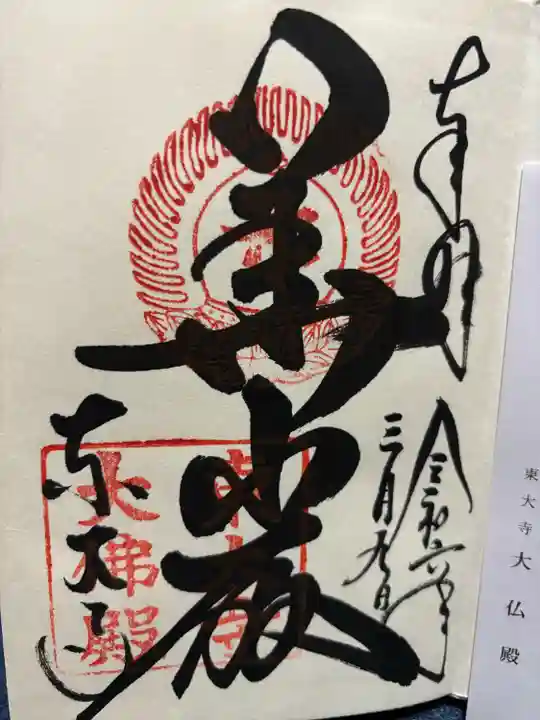 東大寺 大仏殿
奉拝
令和六年
三月九日
華厳
東大寺
東大寺
大佛殿